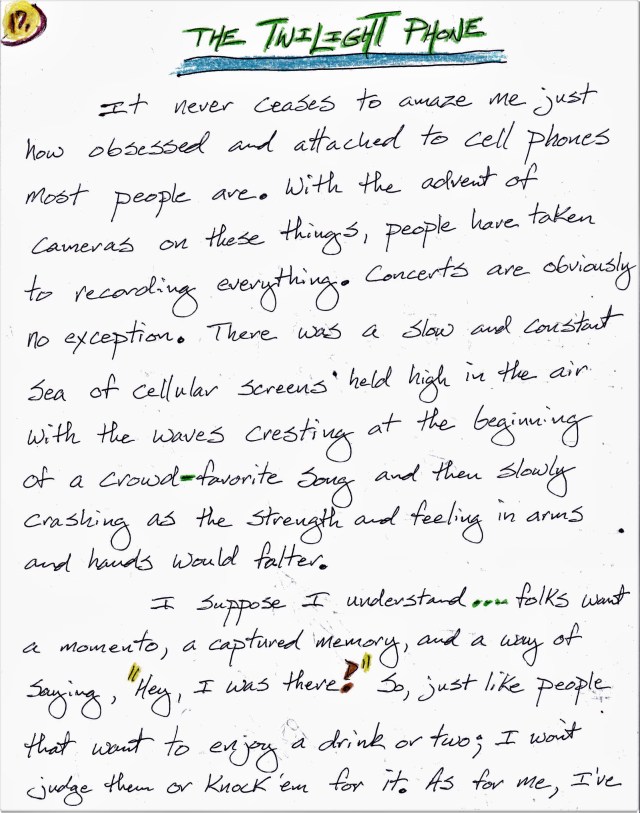 17.
THE TWILIGHT PHONE
It never ceases to amaze me just
how obsessed and attached to cell phones
most people are. With the advent of
cameras on these things, people have taken
to recording everything. Concerts are obviously
no exception. There was a slow and constant
sea of cellular screens held high in the air
with the waves cresting at the beginning
of a crowd-favorite song and then slowly
crashing as the strength and feeling in arms
and hands would falter.
I suppose I understand.... folks want
a momento, a captured memory, and a way of
saying, "Hey, I was there!" So, just like people
that want to enjoy a drink or two; I won't
judge them or knock 'em for it. As for me, I've